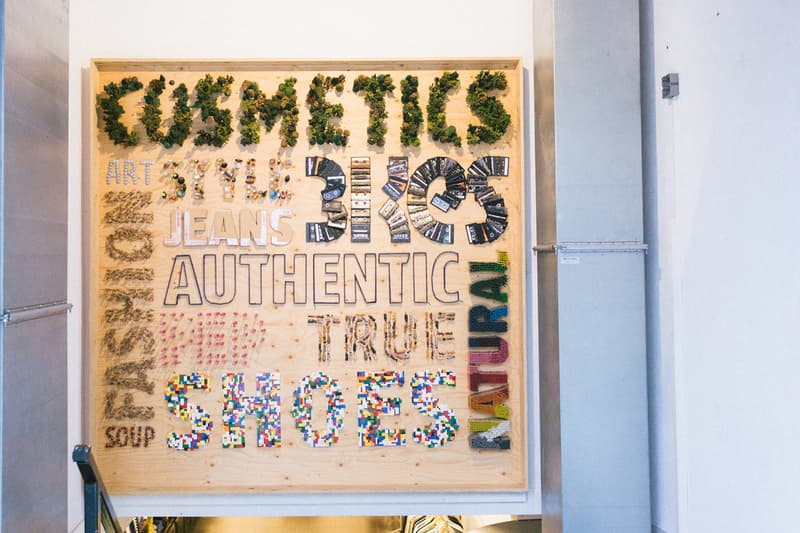 COSMETICS
ART
STYLE
JEANS
FASHION
AUTHENTIC
NATURAL
TRUE
SHOES
SOUP